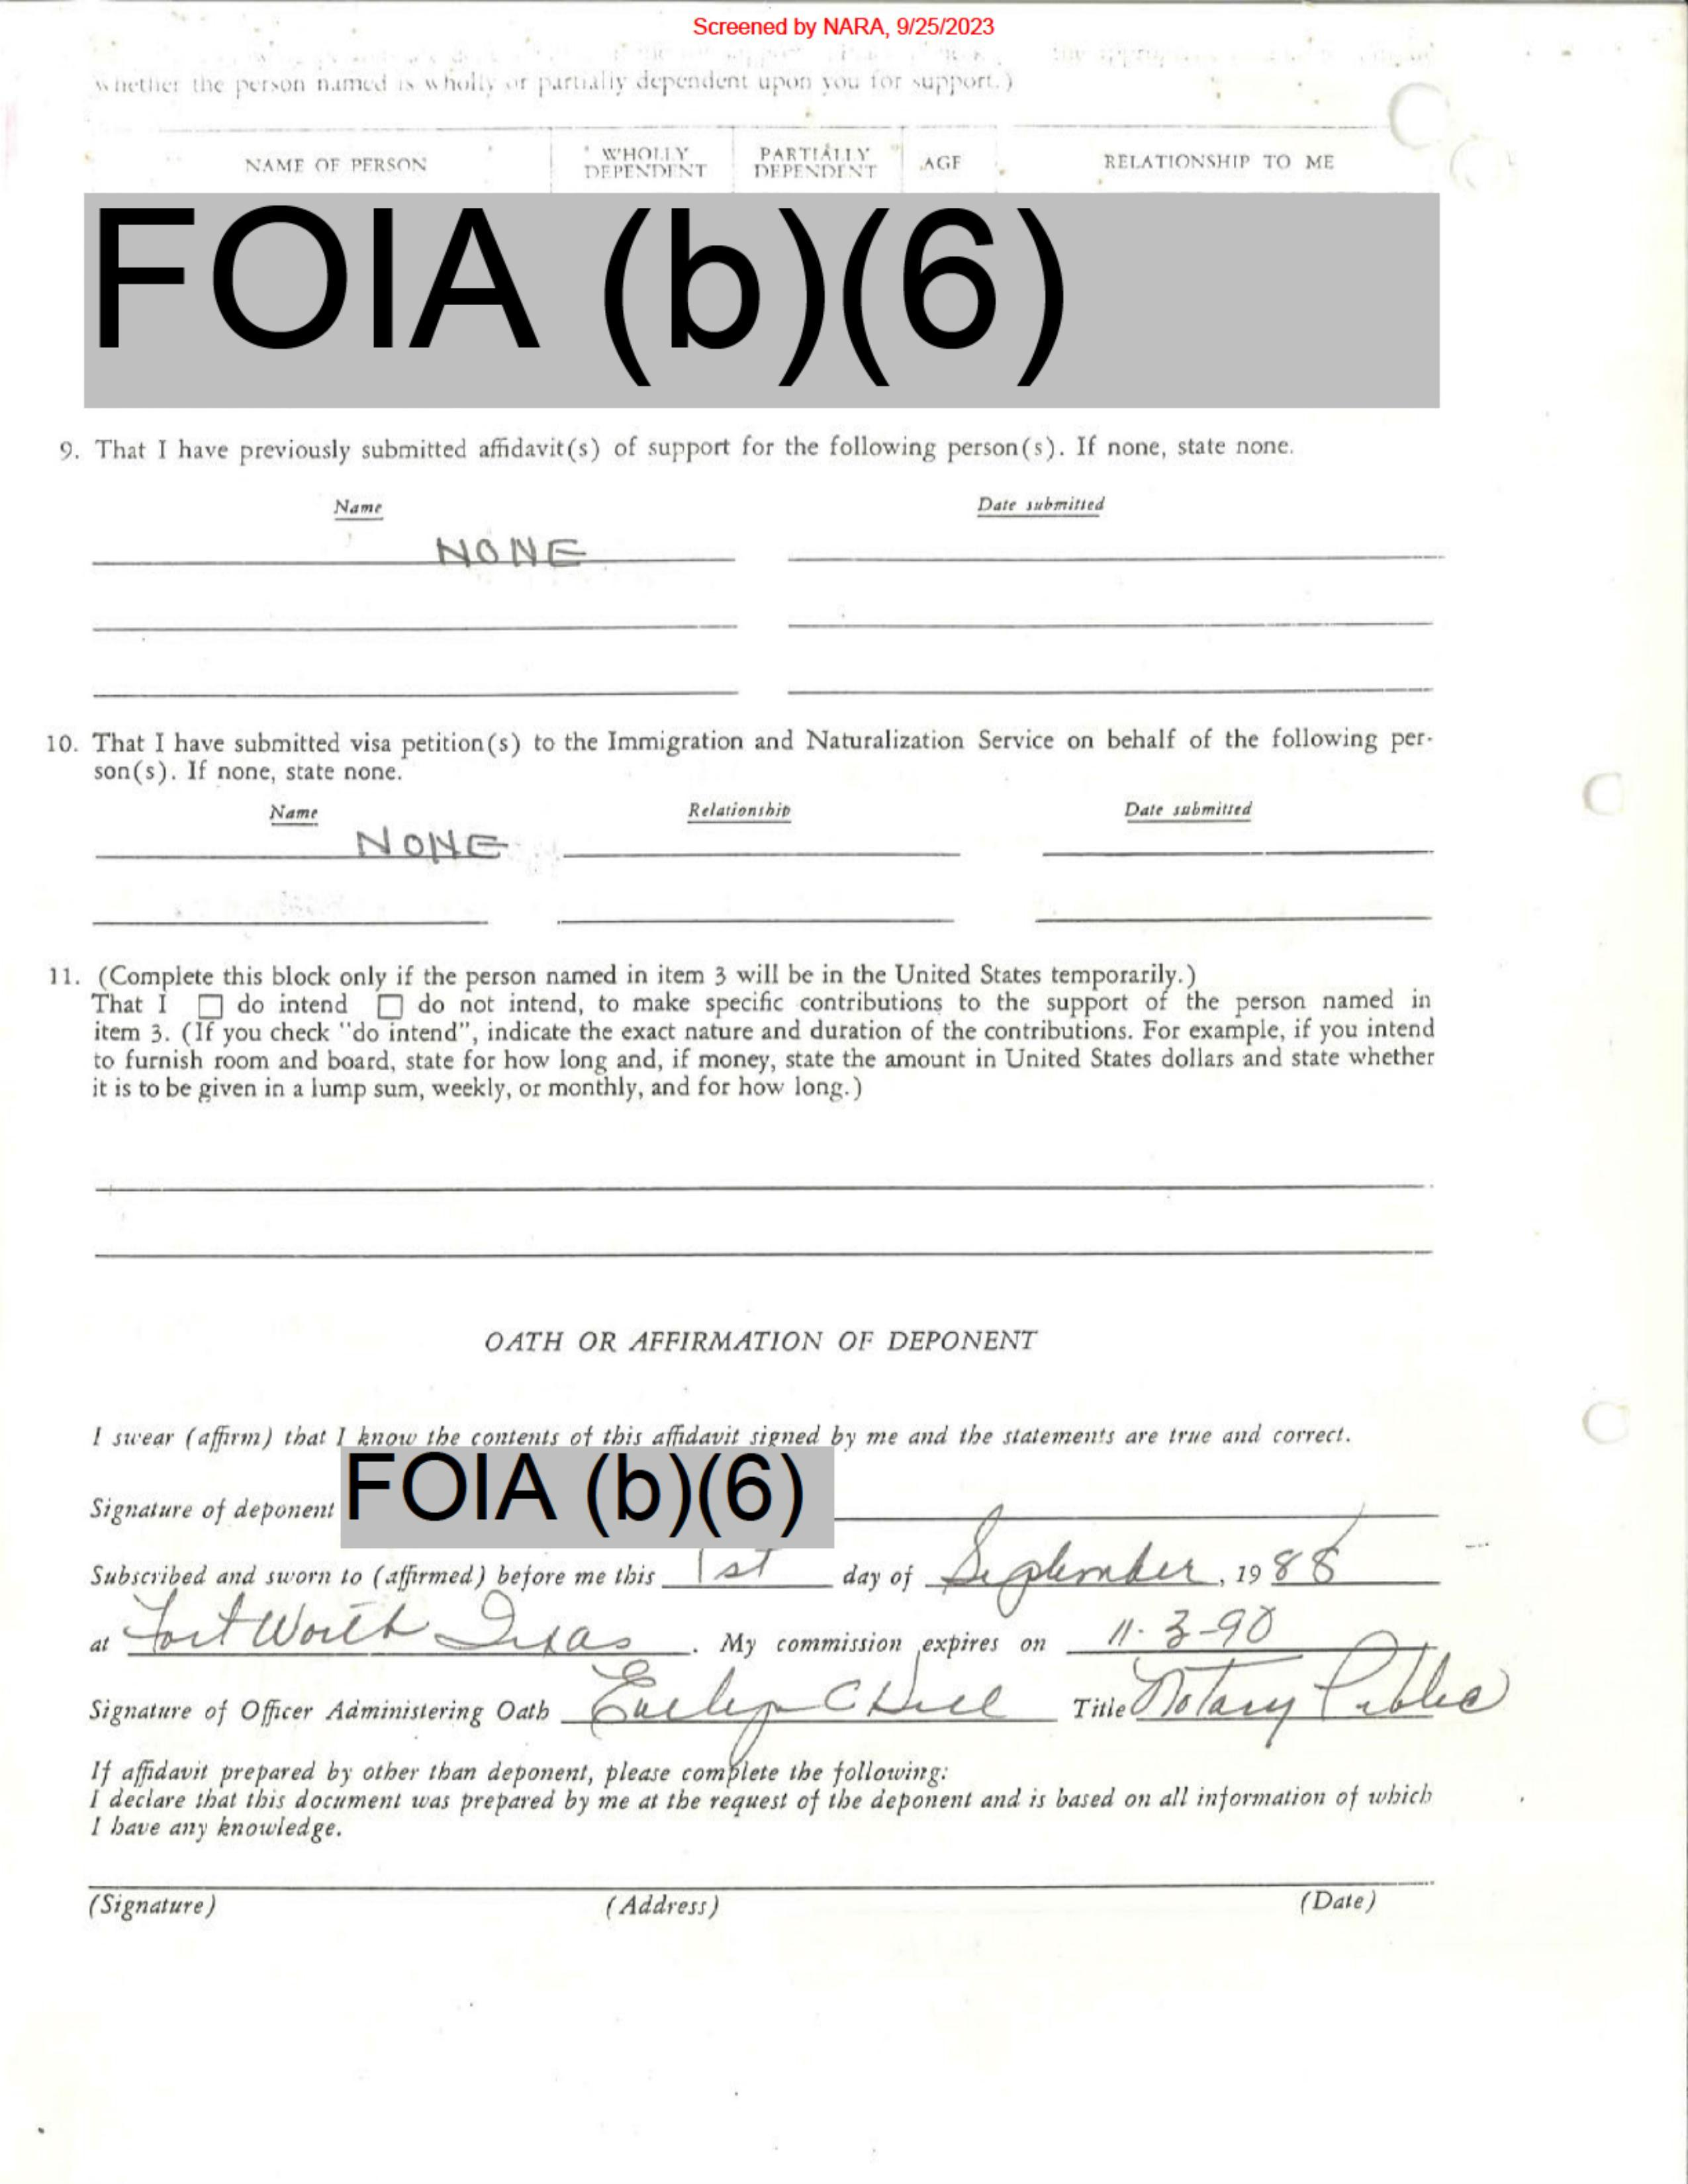 Screened by NARA, 9/25/2023
whether the person named is wholly or partially dependent upon you for support.)
NAME OF PERSON WHOLLY DEPENDENT PARTIALLY DEPENDENT AGE RELATIONSHIP TO ME
FOIA (b)(6)
9. That I have previously submitted affidavit(s) of support for the following person(s). If none, state none.
Name Date submitted
NONE
10. That I have submitted visa petition(s) to the Immigration and Naturalization Service on behalf of the following per-
son(s). If none, state none.
Name Relationship Date submitted
NONE
11. (Complete this block only if the person named in item 3 will be in the United States temporarily.)
That I ☐ do intend ☐ do not intend, to make specific contributions to the support of the person named in
item 3. (If you check "do intend", indicate the exact nature and duration of the contributions. For example, if you intend
to furnish room and board, state for how long and, if money, state the amount in United States dollars and state whether
it is to be given in a lump sum, weekly, or monthly, and for how long.)
OATH OR AFFIRMATION OF DEPONENT
I swear (affirm) that I know the contents of this affidavit signed by me and the statements are true and correct.
Signature of deponent FOIA (b)(6)
Subscribed and sworn to (affirmed) before me this 1st day of September, 19 88
at Fort Worth Texas. My commission expires on 11-3-90
Signature of Officer Administering Oath Evelyn C Hill Title Notary Public
If affidavit prepared by other than deponent, please complete the following:
I declare that this document was prepared by me at the request of the deponent and is based on all information of which
I have any knowledge.
(Signature) (Address) (Date)